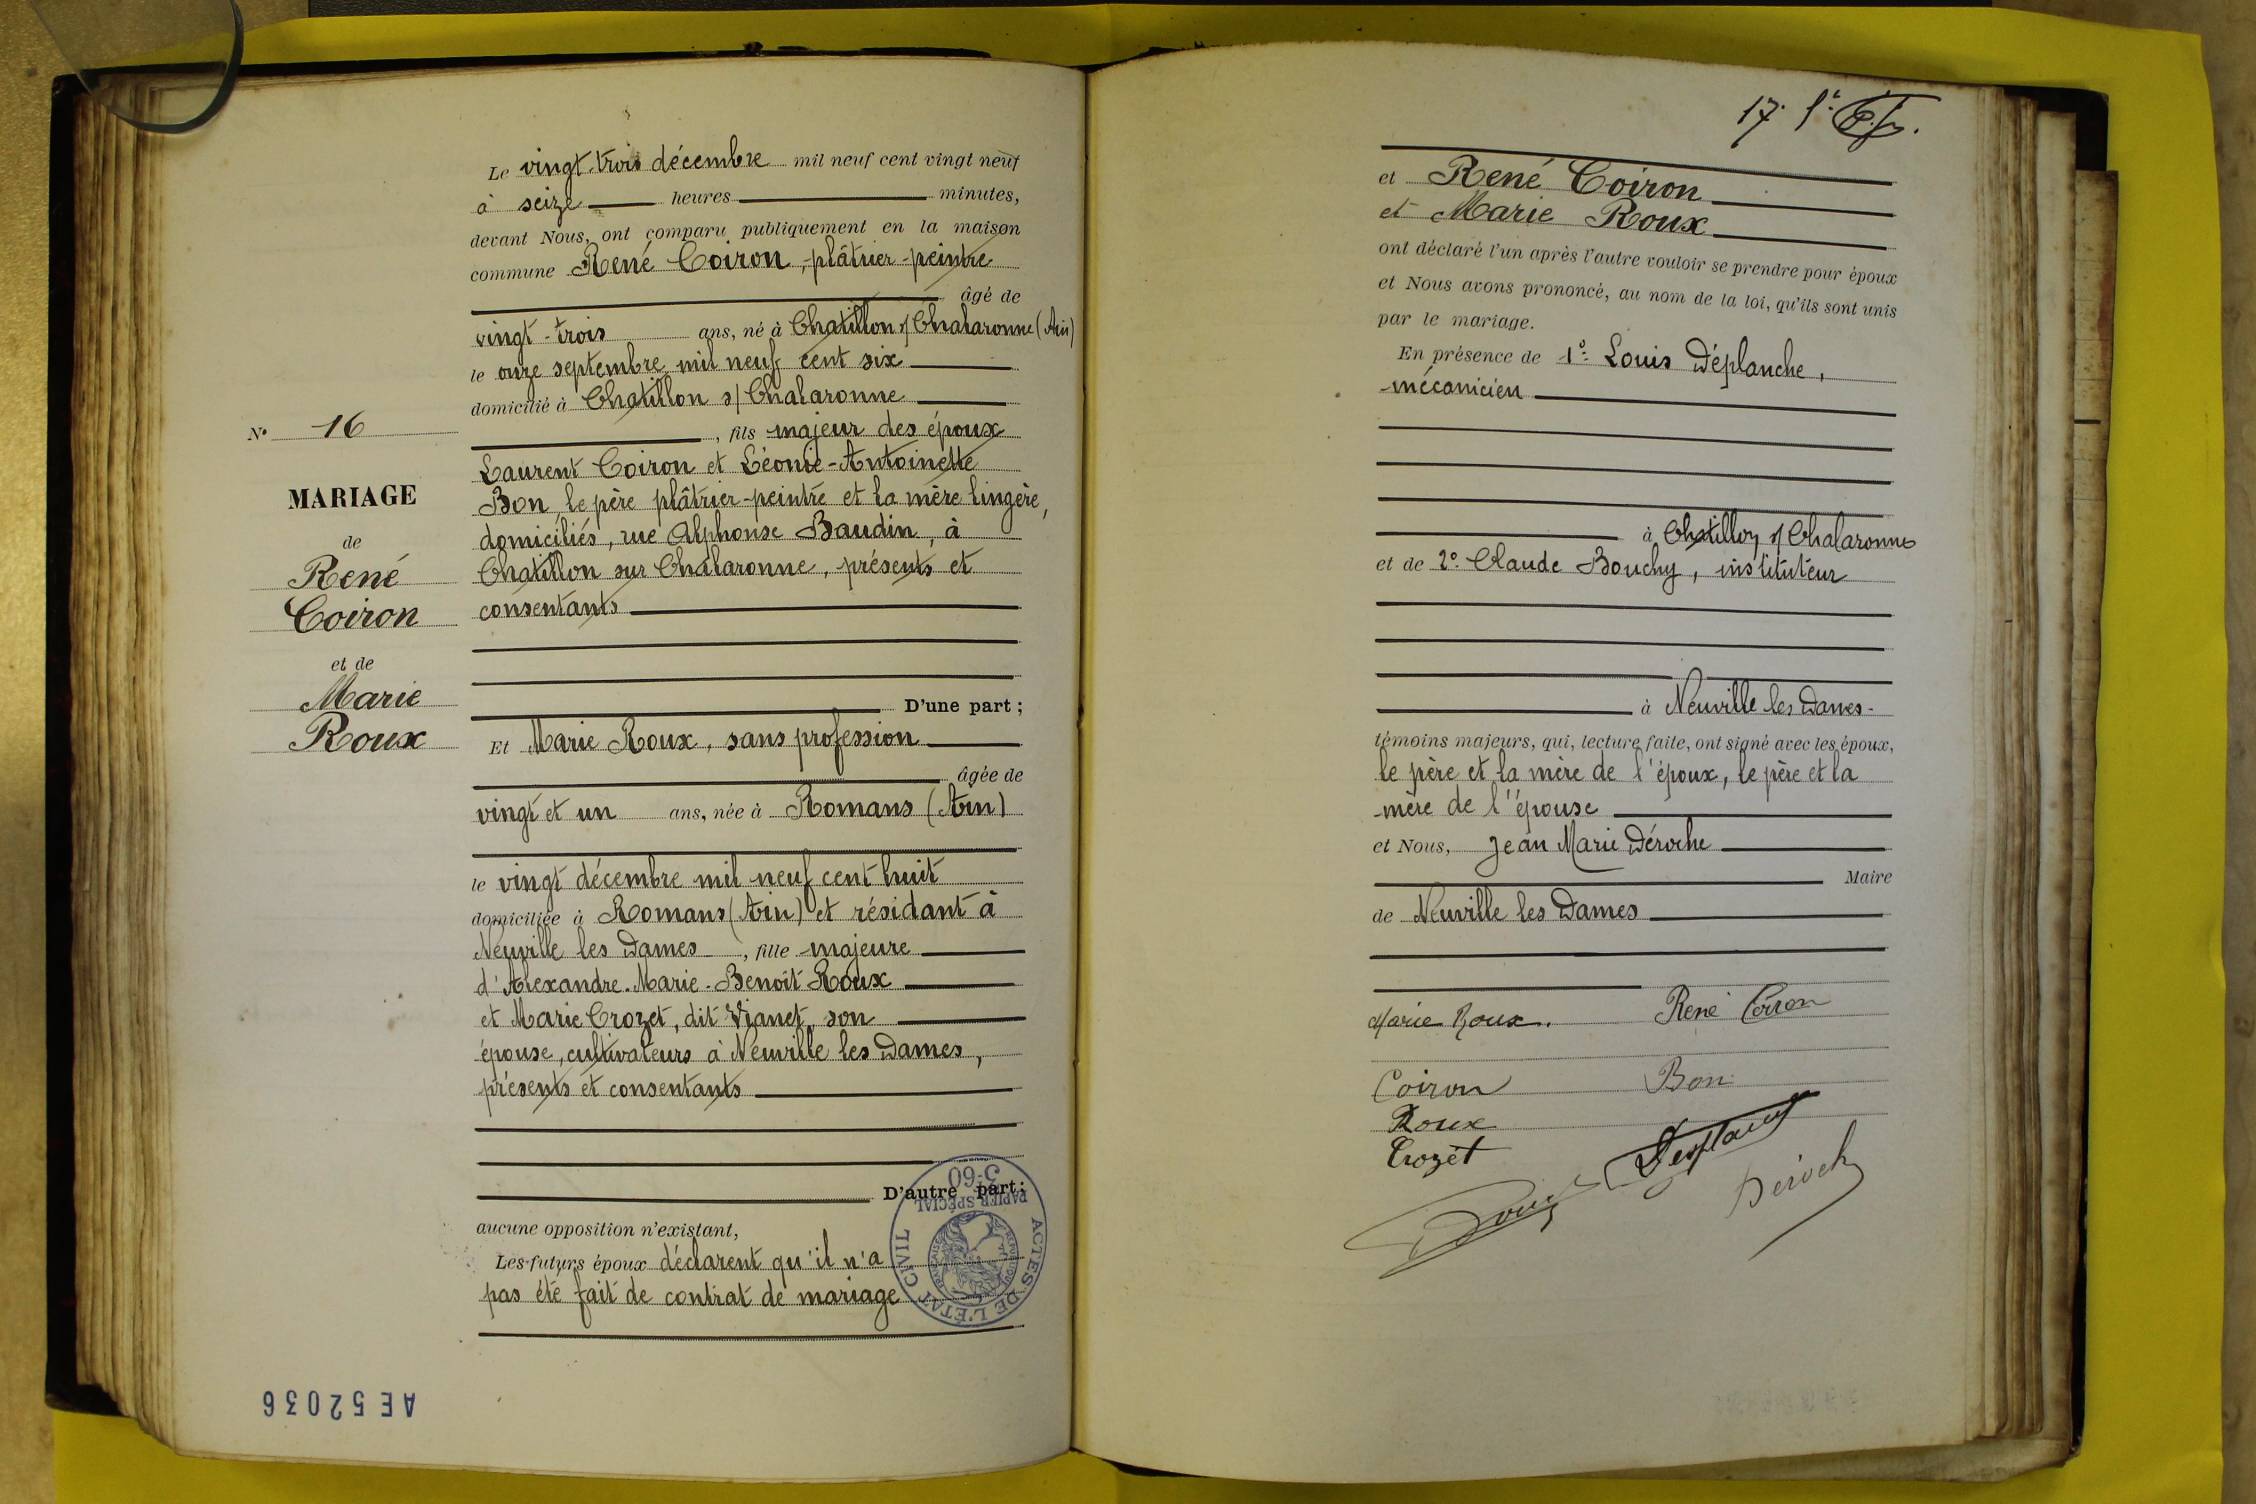 Le vingt-trois décembre mil neuf cent vingt neuf
à seize heures minutes,
devant Nous, ont comparu publiquement en la maison
commune René Coiron, plâtrier-peintre
âgé de
vingt-trois ans, né à Chatillon s/ Chalaronne (Ain)
le onze septembre mil neuf cent six
domicilié à Chatillon s/ Chalaronne
, fils majeur des époux
Laurent Coiron et Léonie-Antoinette
Bon, le père plâtrier-peintre et la mère lingère,
domiciliés, rue Alphonse Baudin, à
Chatillon sur Chalaronne, présents et
consentants
D'une part ;
Et Marie Roux, sans profession
âgée de
vingt et un ans, née à Romans (Ain)
le vingt décembre mil neuf cent huit
domiciliée à Romans (Ain) et résidant à
Neuville les Dames, fille majeure
d'Alexandre-Marie-Benoît Roux
et Marie Crozet, dit Vianet, son
épouse, cultivateurs à Neuville les Dames,
présents et consentants
D'autre part ;
aucune opposition n'existant,
Les futurs époux déclarent qu'il n'a
pas été fait de contrat de mariage
N° 16
MARIAGE
de
René
Coiron
et de
Marie
Roux
ACTES DE L'ÉTAT CIVIL
PAPIER SPÉCIAL
3.60
RÉPUBLIQUE FRANÇAISE
AE 52036
17.
et René Coiron
et Marie Roux
ont déclaré l'un après l'autre vouloir se prendre pour époux
et Nous avons prononcé, au nom de la loi, qu'ils sont unis
par le mariage.
En présence de 1° Louis Déplanche,
mécanicien
à Chatillon s/ Chalaronne
et de 2° Claude Bouchy, instituteur
à Neuville les Dames-
témoins majeurs, qui, lecture faite, ont signé avec les époux,
le père et la mère de l'époux, le père et la
mère de l'épouse
et Nous, Jean Marie Déroche
Maire
de Neuville les Dames
Marie Roux. René Coiron
Coiron Bon
Roux
Crozet
Déroche